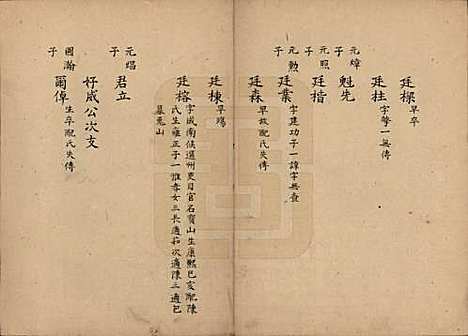 廷樑早卒
廷桂字簪一無傳
元煒子
魁先
元照子
廷楷
元勲子
廷業字建功子一諱字無查
廷森早故配氏失傳
廷棟早殤
廷榕字咸南候選州吏目官名寶山生康熙己亥配陳
氏生雍正子一惟孝女三長適茹次適陳三適包
墓兎山
元焻子
君立
好咸公次支
國瀚子
爾倬生卒配氏失傳